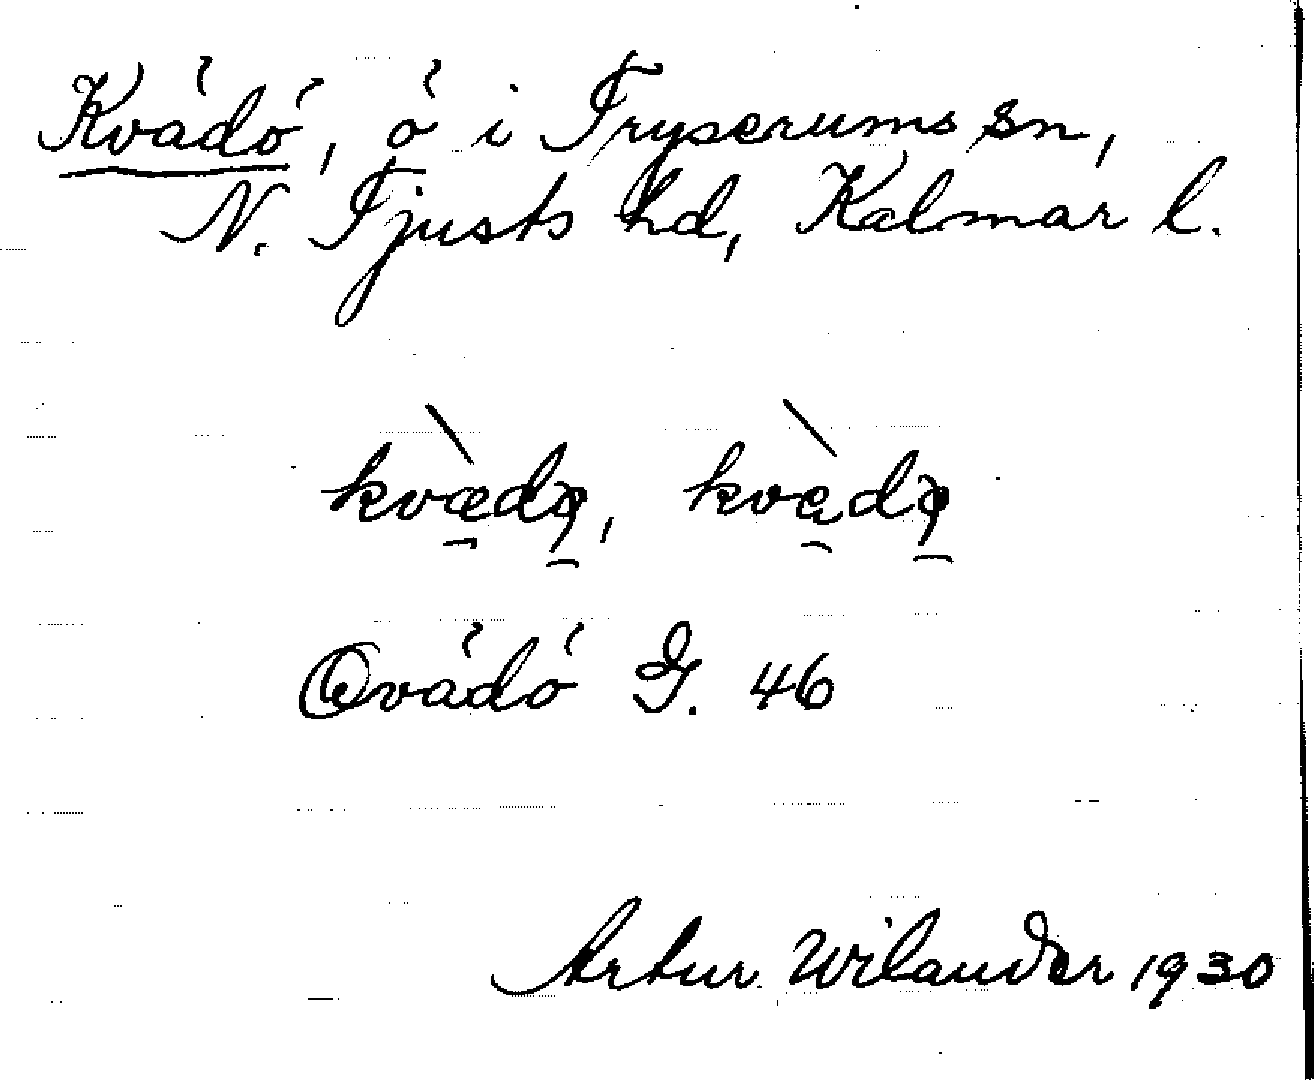 Kvädö, ö i Tryserums sn,
N. Tjusts hd, Kalmar l.
Qvädö G. 46
Artur Wilander 1930